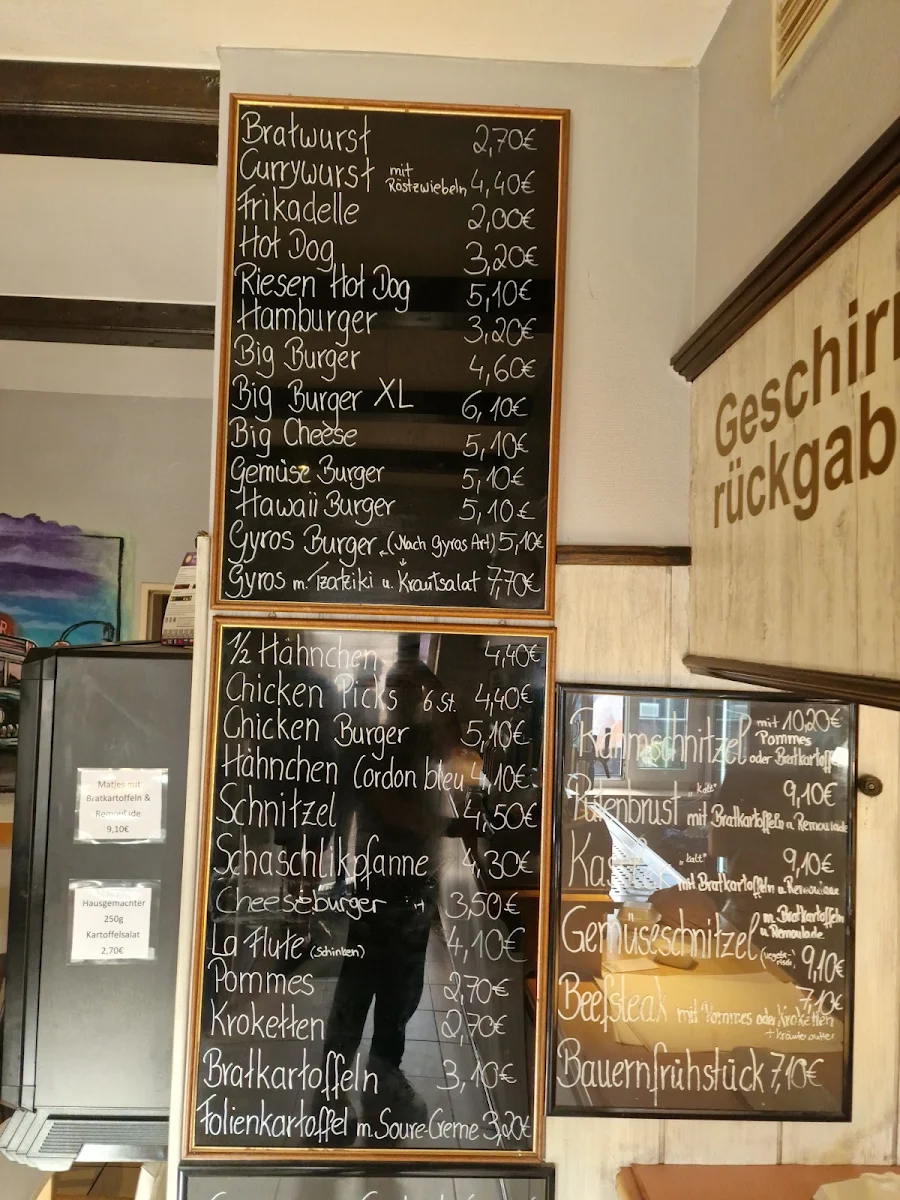 Bratwurst 2,70€
Currywurst mit Röstzwiebeln 4,40€
Frikadelle 2,00€
Hot Dog 3,20€
Riesen Hot Dog 5,10€
Hamburger 3,20€
Big Burger 4,60€
Big Burger XL 6,10€
Big Cheese 5,10€
Gemüse Burger 5,10€
Hawaii Burger 5,10€
Gyros Burger (Nach Gyros Art) 5,10€
Gyros m. Tzatziki u. Krautsalat 7,70€
1/2 Hähnchen 4,40€
Chicken Picks 6 St. 4,40€
Chicken Burger 5,10€
Hähnchen Cordon bleu 4,10€
Schnitzel 4,50€
Schaschlikpfanne 4,30€
Cheeseburger 3,50€
La Flute (Schinken) 4,10€
Pommes 2,70€
Kroketten 2,70€
Bratkartoffeln 3,10€
Folienkartoffel m. Soure-Creme 3,20€
Rahmschnitzel mit 10,20€
Pommes
oder Bratkartoffeln
Putenbrust "kalt" 9,10€
mit Bratkartoffeln u. Remoulade
"kalt" 9,10€
mit Bratkartoffeln u. Remoulade
Gemüseschnitzel m. Bratkartoffeln
u. Remoulade
9,10€
Beefsteak mit Pommes oder Kroketten 7,10€
+ Kräuterbutter
Bauernfrühstück 7,10€
Geschirr
rückgab
Matjes mit
Bratkartoffeln &
Remoulade
9,10€
Hausgemachter
250g
Kartoffelsalat
2,70€